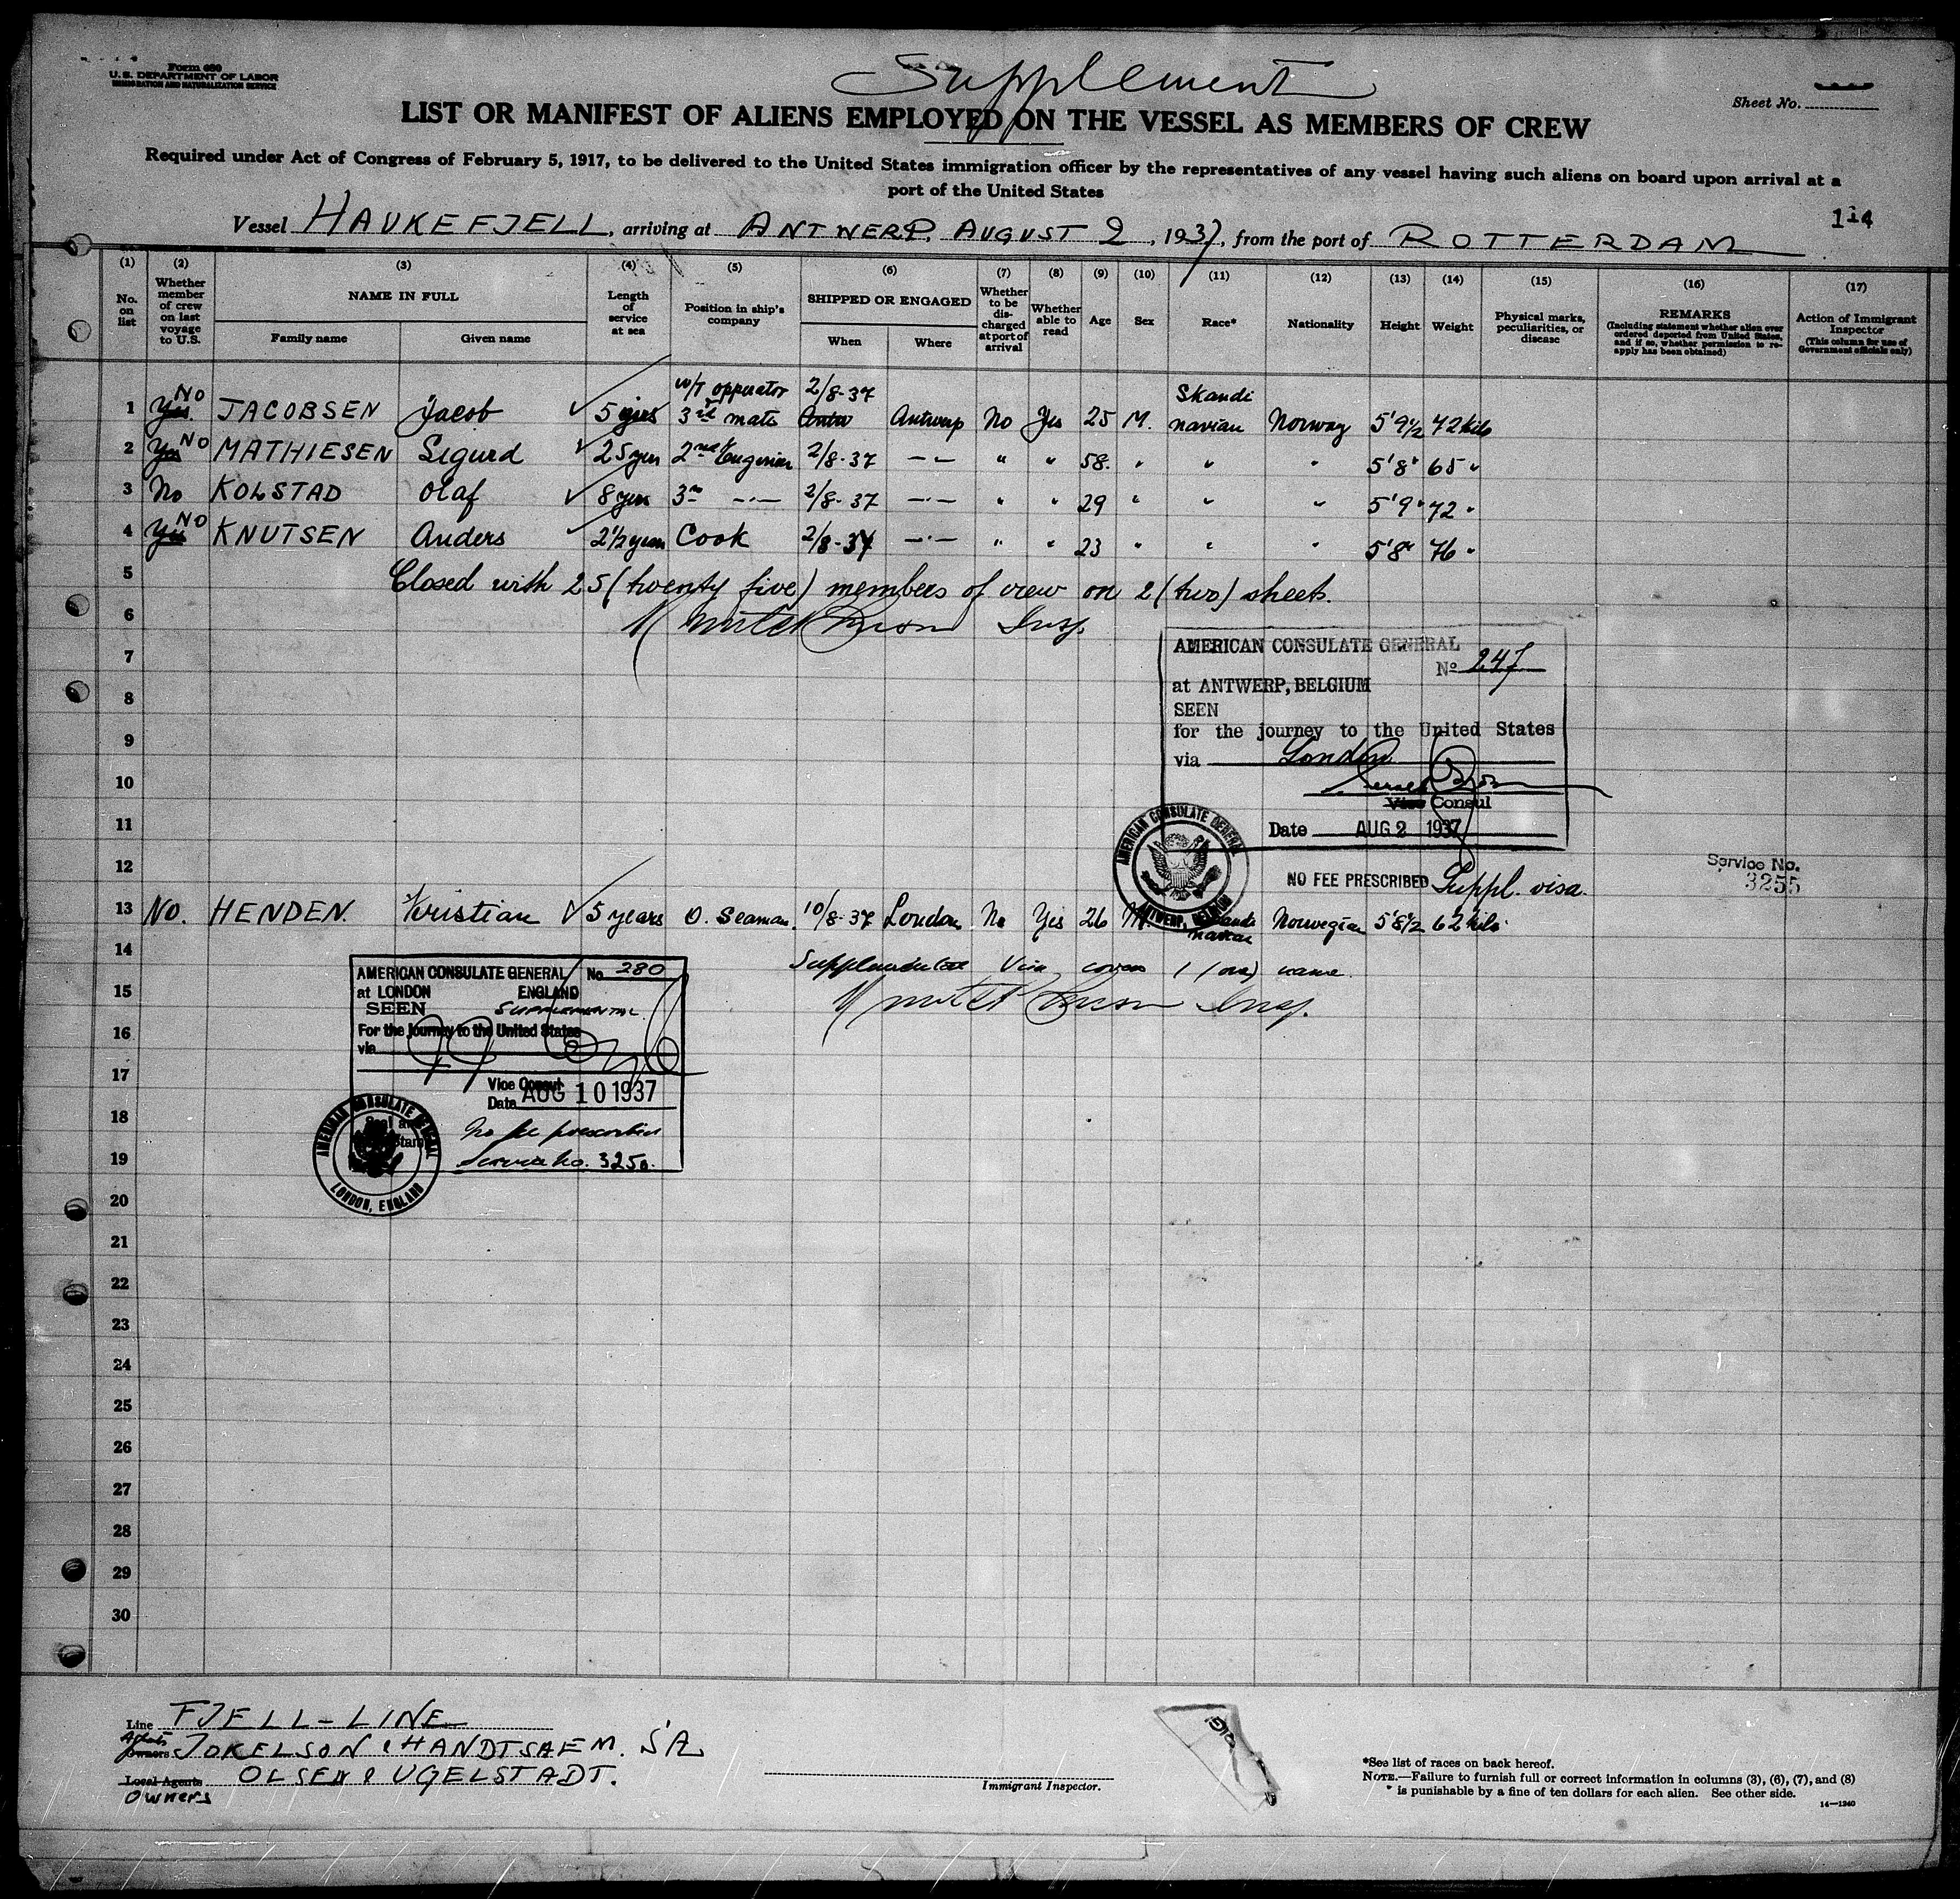 Form 680
U. S. DEPARTMENT OF LABOR
IMMIGRATION AND NATURALIZATION SERVICE
Supplement
Sheet No.
LIST OR MANIFEST OF ALIENS EMPLOYED ON THE VESSEL AS MEMBERS OF CREW
Required under Act of Congress of February 5, 1917, to be delivered to the United States immigration officer by the representatives of any vessel having such aliens on board upon arrival at a
port of the United States
114
Vessel HAUKEFJELL, arriving at ANTWERP, AUGUST 2, 1937, from the port of ROTTERDAM
(1) (2) (3) (4) (5) (6) (7) (8) (9) (10) (11) (12) (13) (14) (15) (16) (17)
No. on list
Whether member of crew on last voyage to U.S.
NAME IN FULL
Family name
Given name
Length of service at sea
Position in ship's company
SHIPPED OR ENGAGED
When
Where
Whether to be discharged at port of arrival
Whether able to read
Age
Sex
Race*
Nationality
Height
Weight
Physical marks, peculiarities, or disease
REMARKS
(Including statement whether alien ever ordered deported from United States, and if so, whether permission to reapply has been obtained)
Action of Immigrant Inspector
(This column for use of Government officials only)
No w/T opperator 2/8-37 Skandi
1 Yes JACOBSEN Jacob 5 yirs 3rd mate Antw Antwerp No Yes 25 M. navian Norway 5'9½ 72 kilo
2 Yes NO MATHIESEN Sigurd 25 yers 2nd Enginier 2/8-37 -- " " 58. " " " 5'8" 65 "
3 No KOLSTAD Olaf 8 yers 3rd -·- 2/8-37 -·- " " 29 " " " 5'9" 72 "
4 Yes NO KNUTSEN Anders 2½ years Cook 2/8-37 -·- " " 23 " " " 5'8" 76 "
5 Closed with 25 (twenty five) members of crew on 2 (two) sheets.
6 Insp.
7
8
9
10
11
12
AMERICAN CONSULATE GENERAL
No 247
at ANTWERP, BELGIUM
SEEN
for the journey to the United States
via London
Vice Consul
Date AUG 2 1937
AMERICAN CONSULATE GENERAL
ANTWERP, BELGIUM
NO FEE PRESCRIBED Suppl. visa.
Service No.
3255
13 No. HENDEN. Kristian 5 years O. Seaman. 10/8-37 London. No Yes 26 M. Skandi navian Norwegian 5'8½ 62 kilo.
14 Supplemental Visa covers 1 (one) name.
15 Insp.
16
17
18
19
AMERICAN CONSULATE GENERAL No. 280
at LONDON ENGLAND
SEEN SUPPLEMENTAL
For the journey to the United States
via
Vice Consul
Date AUG 10 1937
No fee prescribed
Service No. 3250.
AMERICAN CONSULATE GENERAL
LONDON, ENGLAND
20
21
22
23
24
25
26
27
28
29
30
Line FJELL-LINE
Agents Owners JOKELSON & HANDTSAEM. S/A
Local Agents OLSEN & UGELSTADT.
Owners
Immigrant Inspector.
*See list of races on back hereof.
NOTE.—Failure to furnish full or correct information in columns (3), (6), (7), and (8)
is punishable by a fine of ten dollars for each alien. See other side.
14—1240